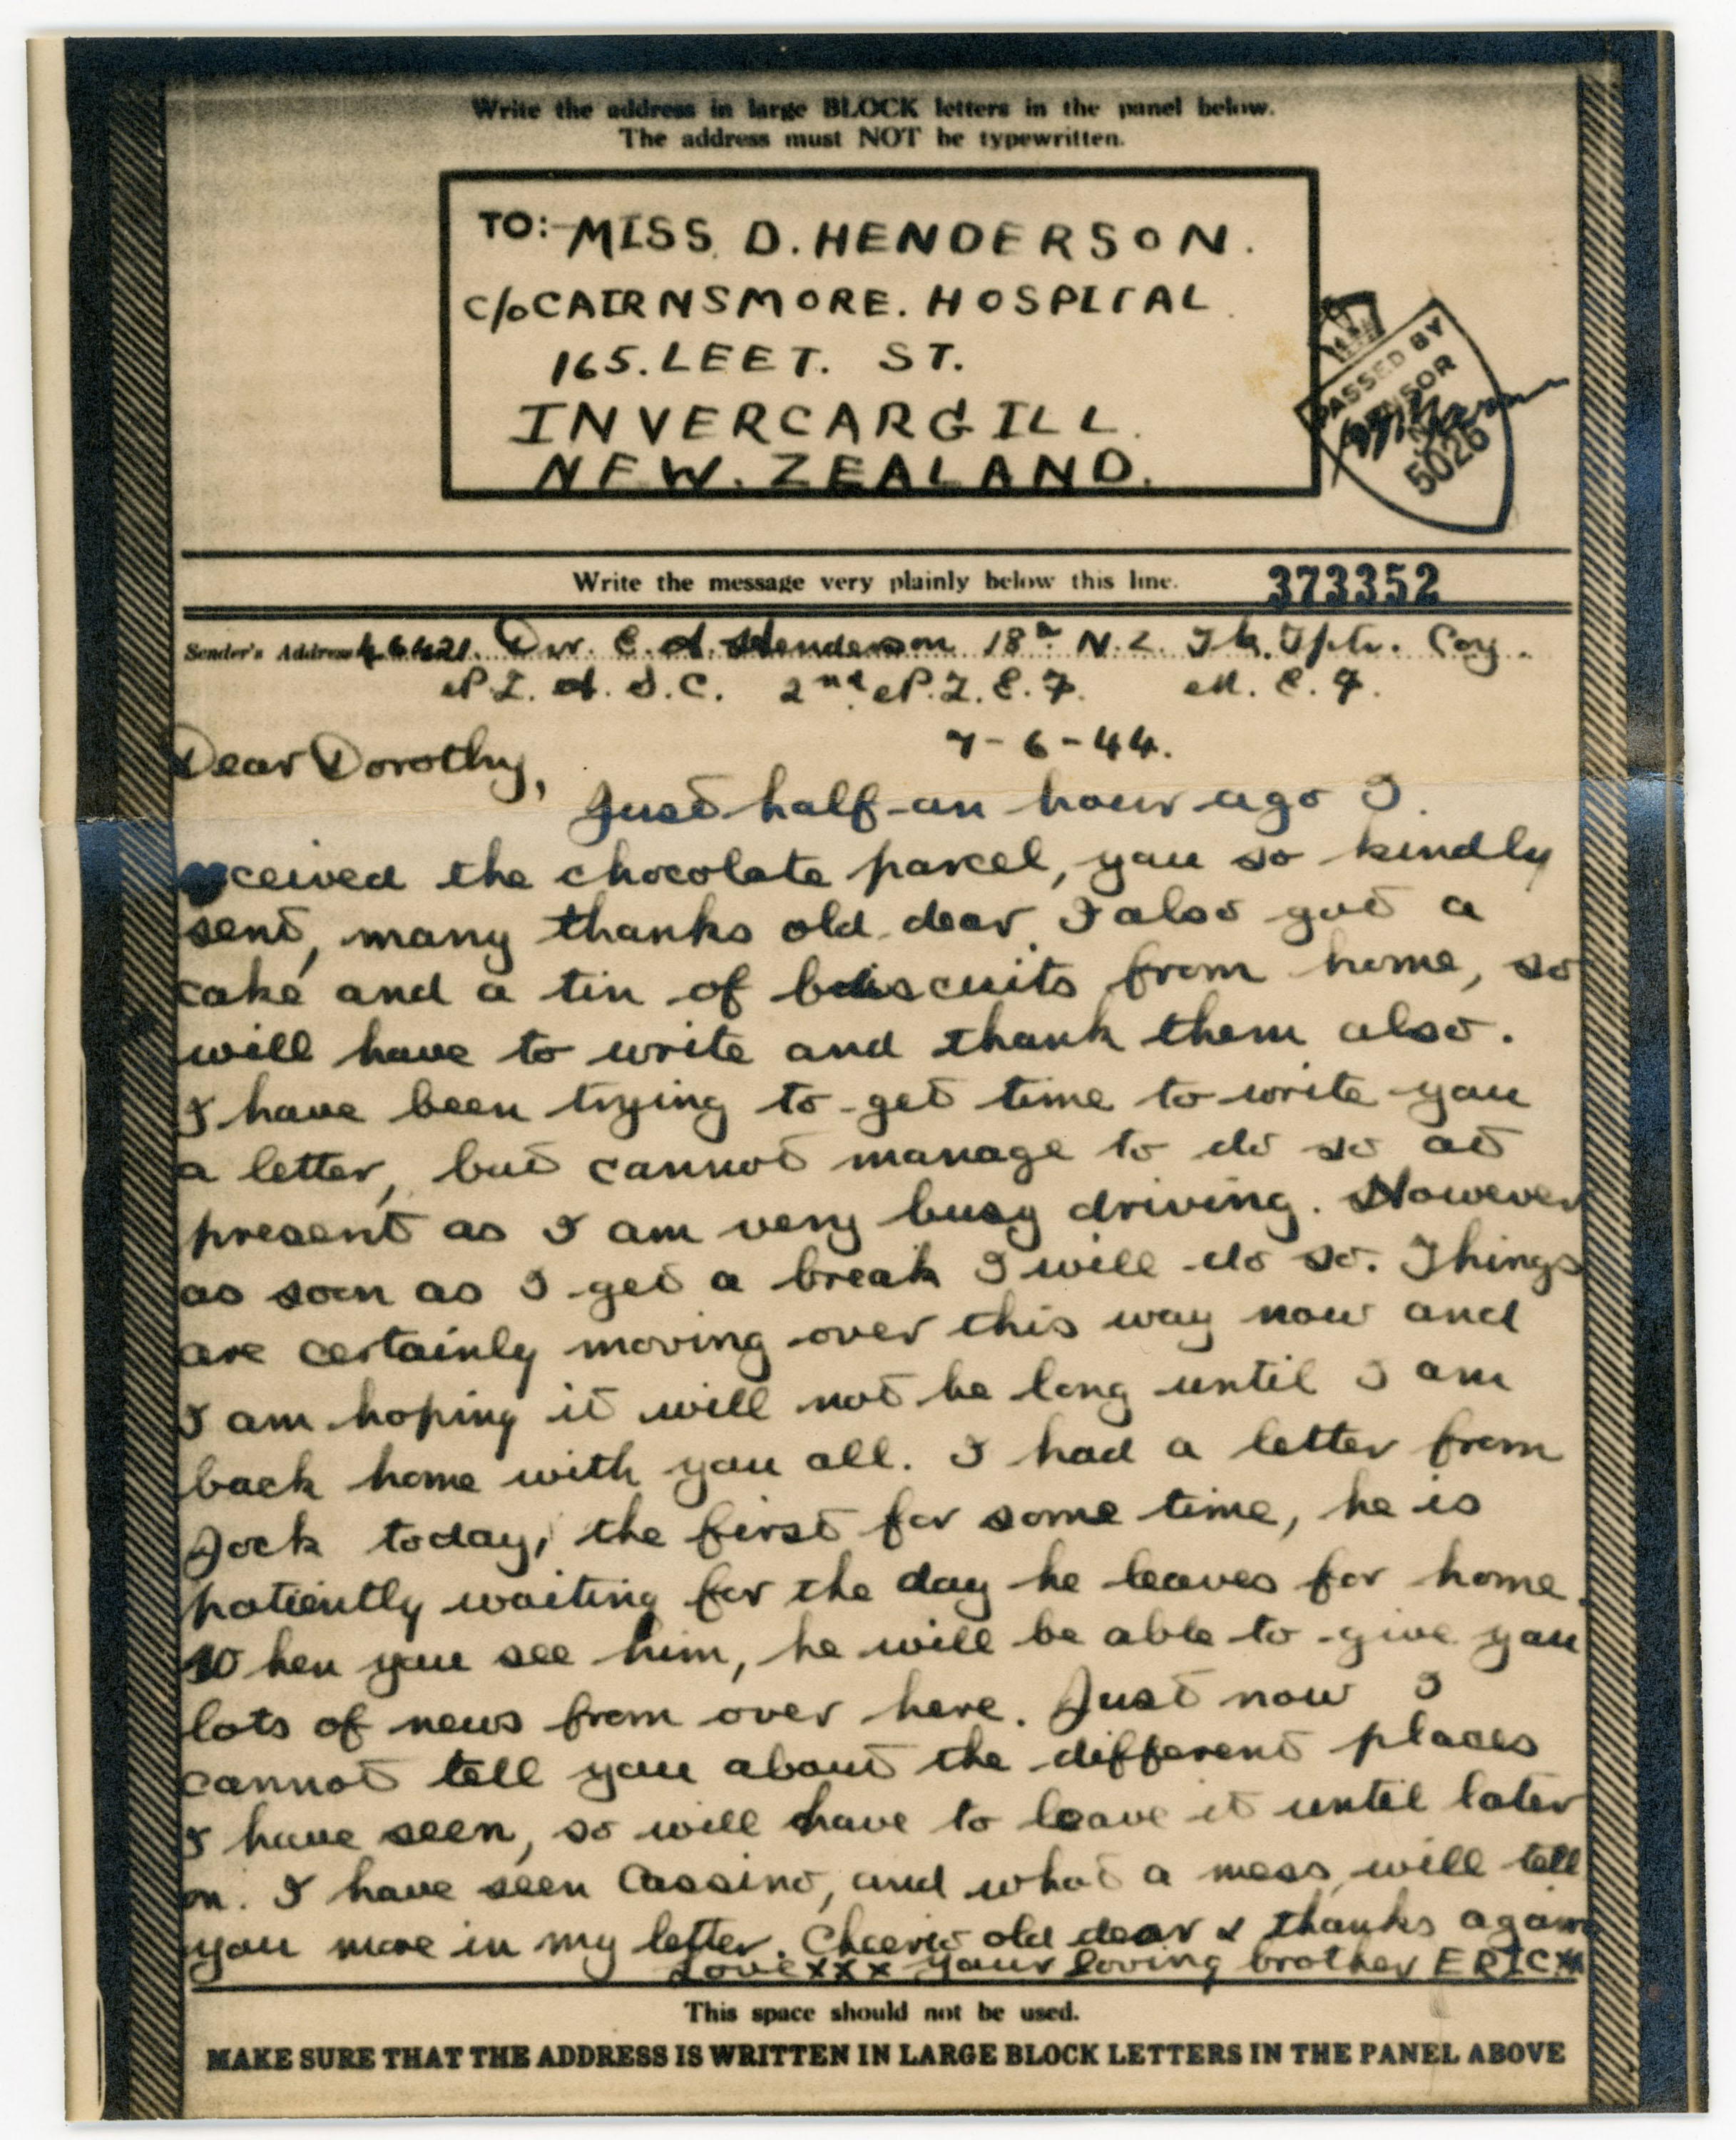 Write the address in large BLOCK letters in the panel below.
The address must NOT be typewritten.
TO:- MISS. D. HENDERSON.
C/O CAIRNSMORE. HOSPITAL.
165. LEET. ST.
INVERCARGILL.
NEW. ZEALAND.
PASSED BY
CENSOR
5026
Write the message very plainly below this line. 373352
Sender's Address Dvr. E. A. Henderson 18th N.Z. Tk. Tptr. Coy.
N.Z. A. S. C. 2nd N.Z. E. F. M. E. F.
7-6-44.
Dear Dorothy,
Just half-an hour ago I
received the chocolate parcel, you so kindly
sent, many thanks old dear. I also got a
cake and a tin of biscuits from home, so
will have to write and thank them also.
I have been trying to get time to write you
a letter, but cannot manage to do so at
present as I am very busy driving. However
as soon as I get a break I will do so. Things
are certainly moving over this way now and
I am hoping it will not be long until I am
back home with you all. I had a letter from
Jock today, the first for some time, he is
patiently waiting for the day he leaves for home.
When you see him, he will be able to give you
lots of news from over here. Just now I
cannot tell you about the different places
I have seen, so will have to leave it until later
on. I have seen Cassino, and what a mess, will tell
you more in my letter. Cheerio old dear & thanks again
Love xxx your loving brother ERIC
This space should not be used.
MAKE SURE THAT THE ADDRESS IS WRITTEN IN LARGE BLOCK LETTERS IN THE PANEL ABOVE